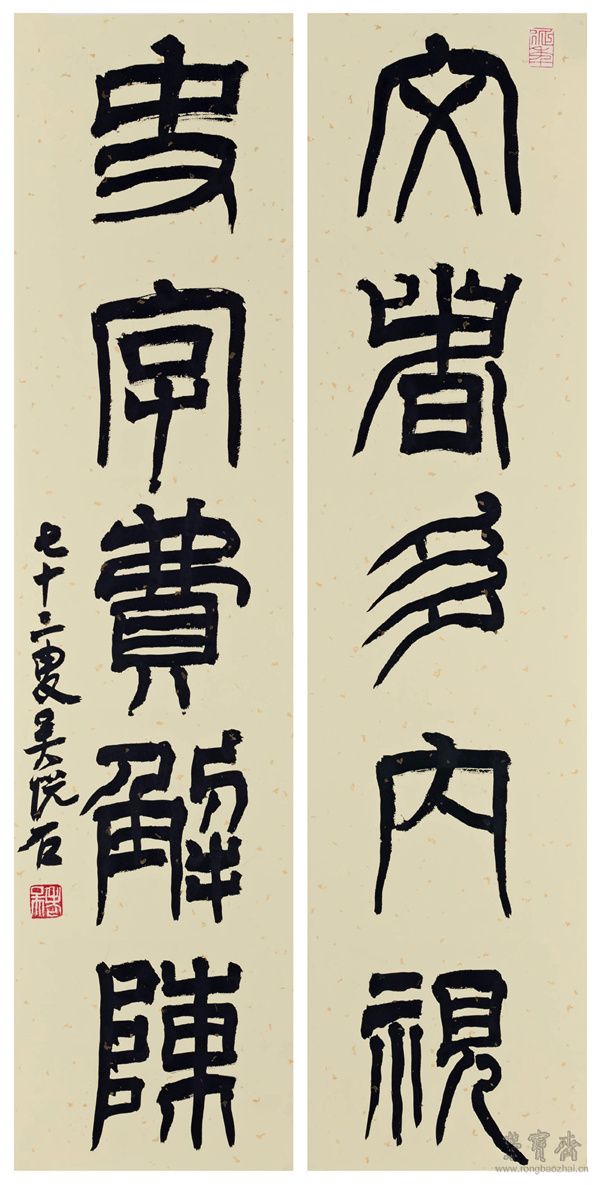 文者多內視
史字費解陳
七十二叟吴悦石
榮寶齋
www.rongbaozhai.cn